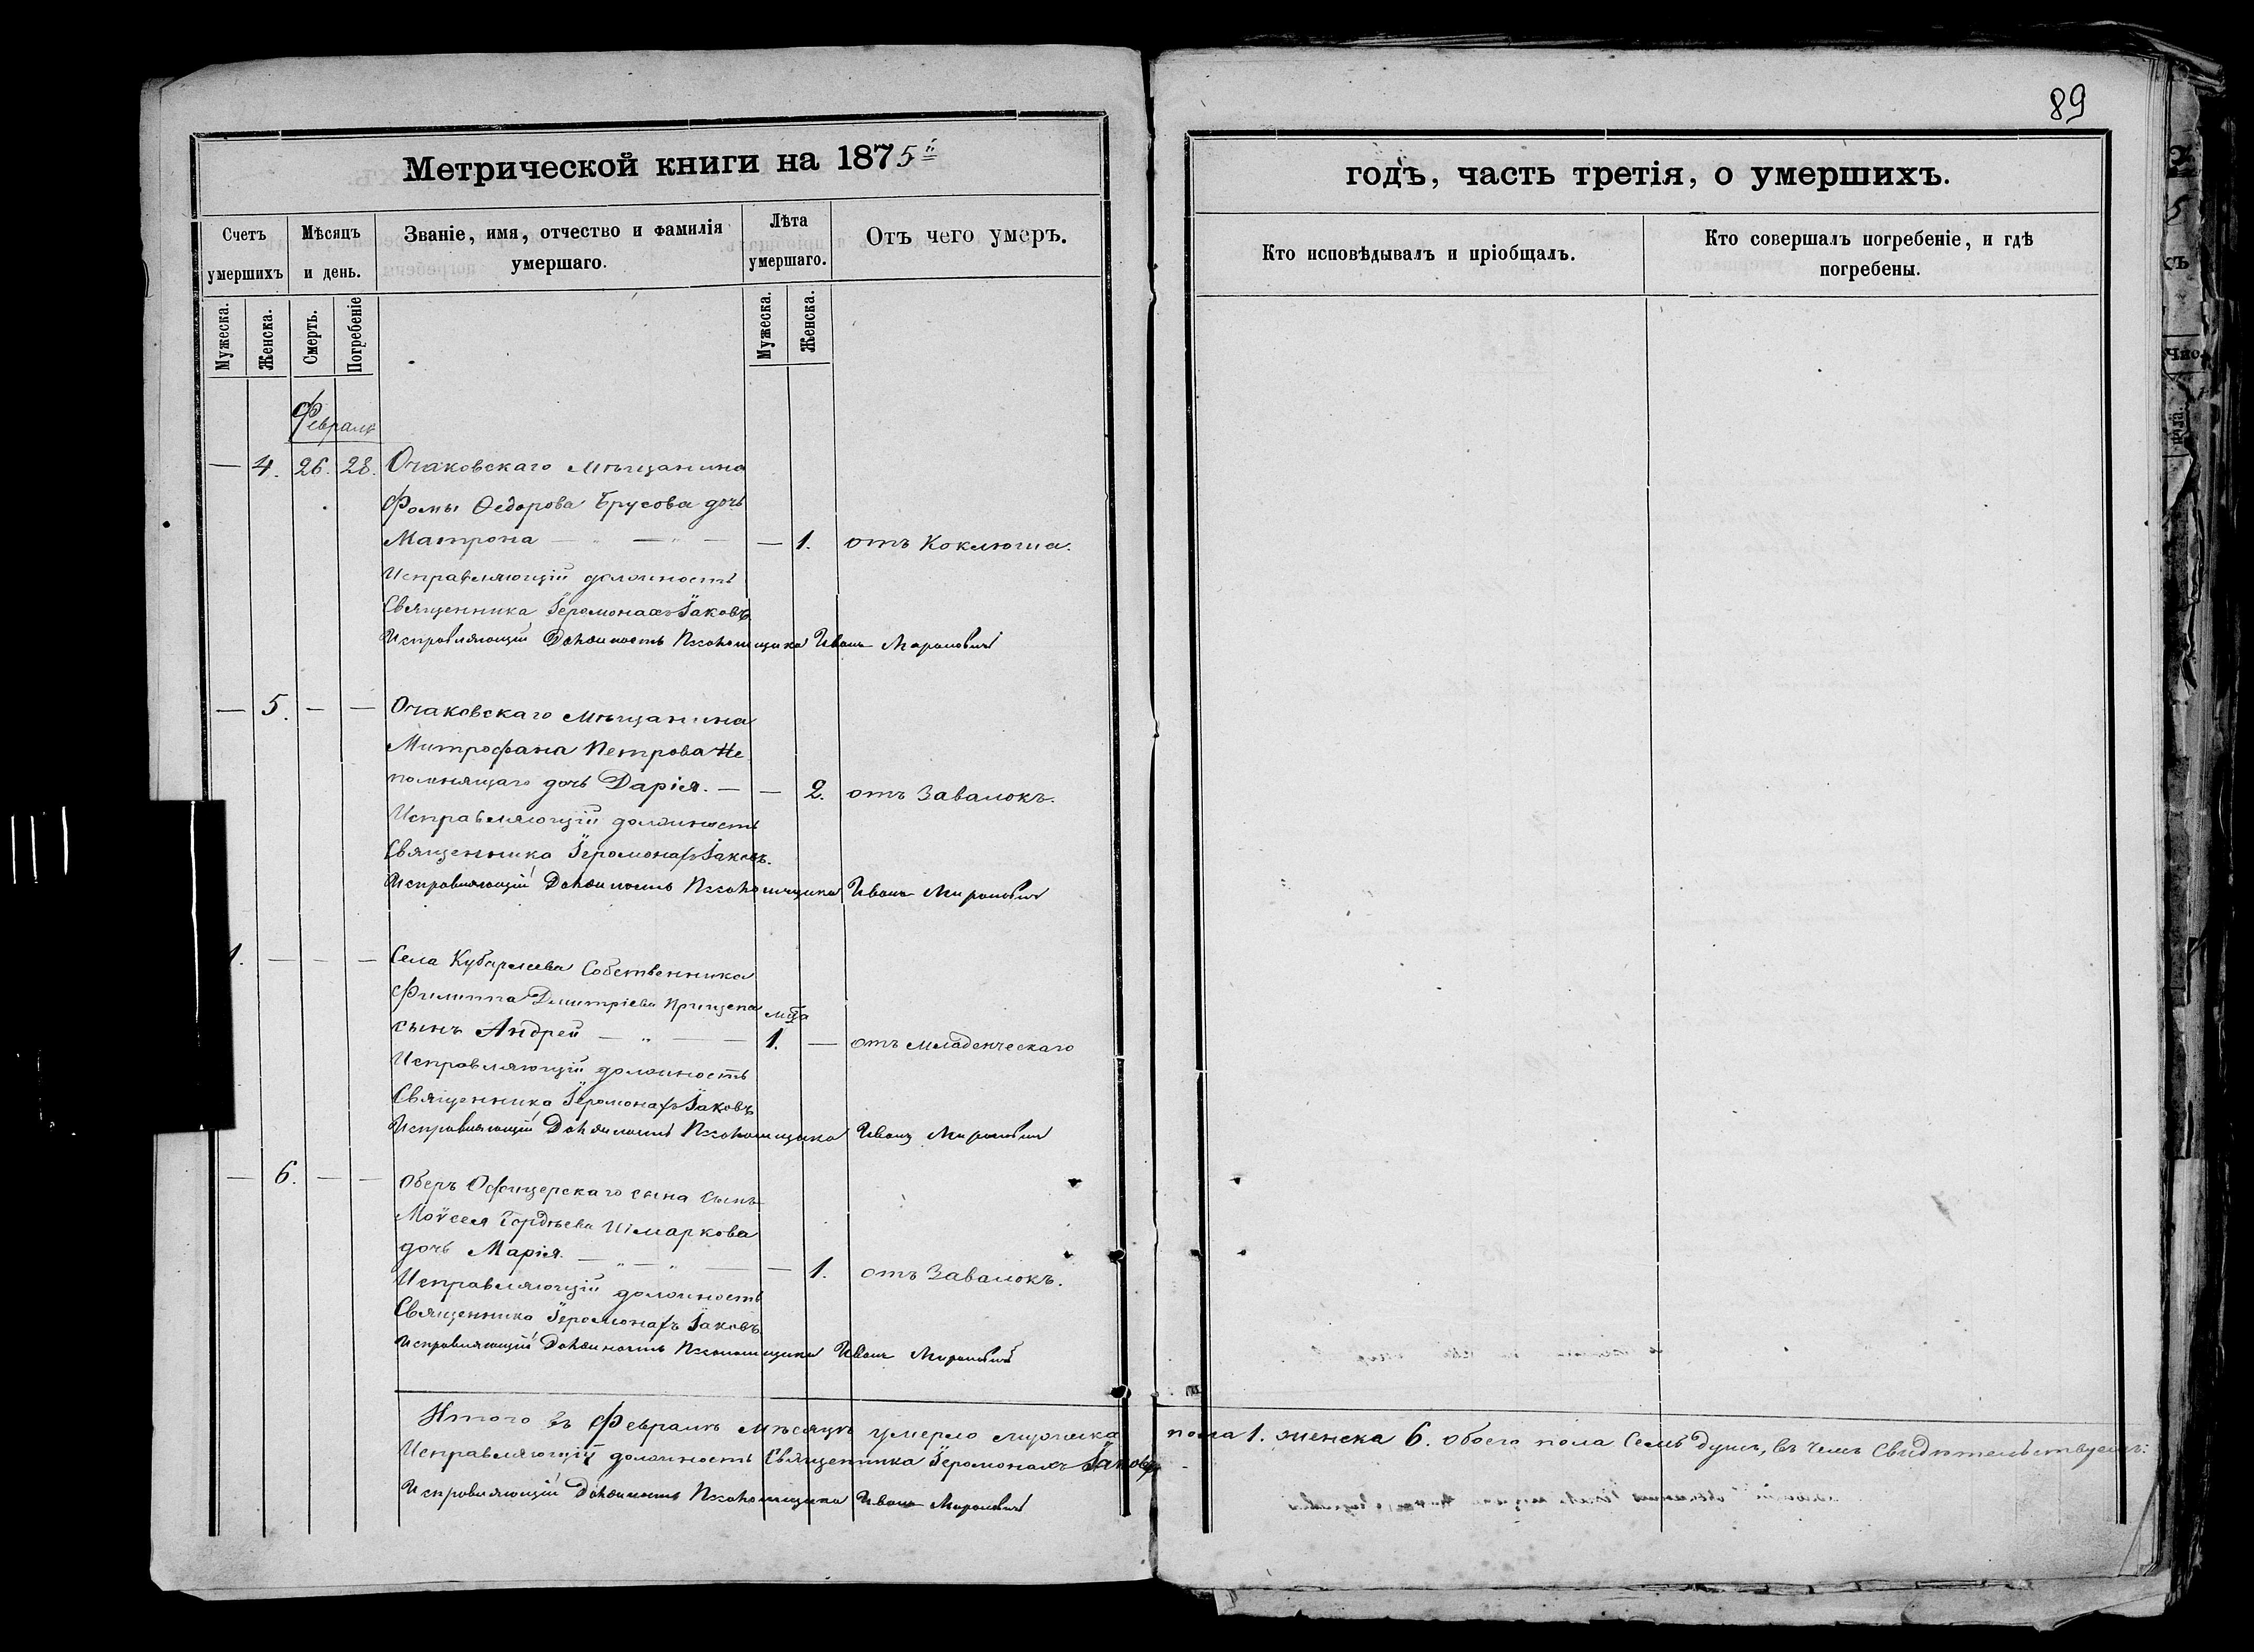 89
Метрической книги на 1875й
годъ, часть третія, о умершихъ.
Счетъ умершихъ
Мѣсяцъ и день.
Званіе, имя, отчество и фамилія умершаго.
Лѣта умершаго.
Отъ чего умеръ.
Кто исповѣдывалъ и пріобщалъ.
Кто совершалъ погребеніе, и гдѣ погребены.
Мужеска.
Женска.
Смерть.
Погребеніе
Мужеска.
Женска.
Февраля
— 4. 26. 28. Очаковскаго мѣщанина
Фомы Ѳедорова Брусова дочь
Матрона — „ — „ — — 1. отъ Коклюша.
Исправляющій должность
Священника Іеромонахъ Іаковъ.
Исправляющій Должность Псаломщика Иванъ Мироновичъ
— 5. — — Очаковскаго мѣщанина
Митрофана Петрова Не
помнящаго дочь Дарія. — — 2. отъ Завалокъ.
Исправляющій должность
Священника Іеромонахъ Іаковъ.
Исправляющій Должность Псаломщика Иванъ Мироновичъ
1. — — — Села Собственника
Филиппа Димитріева Прищепа мца
сынъ Андрей — „ — — 1. — отъ младенческаго
Исправляющій должность
Священника Іеромонахъ Іаковъ
Исправляющій Должность Псаломщика Иванъ Мироновичъ
— 6. — — Оберъ Офицерскаго сына сынъ
Моѵсея Гордѣева Шмаркова
дочь Марія. — „ — „ — — 1. отъ Завалокъ.
Исправляющій должность
Священника Іеромонахъ Іаковъ
Исправляющій Должность Псаломщика Иванъ Мироновичъ
Итого въ Февралѣ мѣсяцѣ умерло мужеска пола 1. женска 6. обоего пола Семь душъ, въ чемъ Свидѣтельствуемъ:
Исправляющій должность Священника Іеромонахъ Іаковъ
Исправляющій Должность Псаломщика Иванъ Мироновичъ